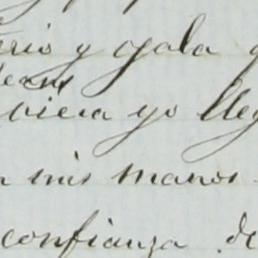 y ojala
viera yo lleg
mis manos
confianza de